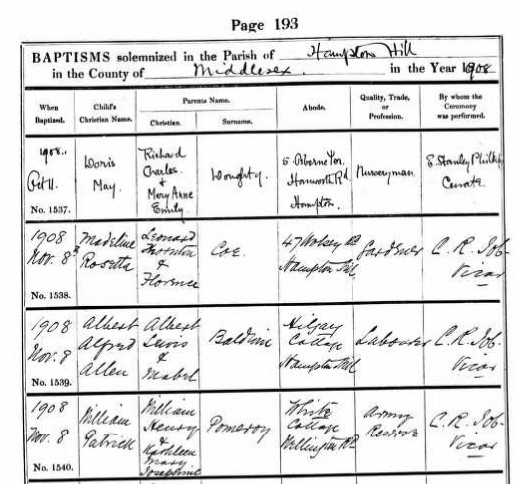 Page 193
BAPTISMS solemnized in the Parish of Hampton Hill
in the County of Middlesex in the Year 1908
When Baptized.
Child's Christian Name.
Parents Name.
Christian.
Surname.
Abode.
Quality, Trade, or Profession.
By whom the Ceremony was performed.
1908.
Oct 11.
No. 1537.
Doris
May.
Richard
Charles.
&
Mary Anne
Emily.
Doughty.
5 Osborne Ter.
Hanworth Rd
Hampton.
Nurseryman.
E. Stanley Phillips
Curate
1908
Nov. 8
No. 1538.
Madeline
Rosetta
Leonard
Thornton
&
Florence
Coe.
47 Wolsey Rd
Hampton Hill
Gardener
C. R. Job.
Vicar
1908
Nov. 8
No. 1539.
Albert
Alfred
Allen
Albert
Lewis
&
Mabel
Baldwin
Hilgay
Cottage
Hampton Hill
Labourer
C. R. Job.
Vicar
1908
Nov. 8
No. 1540.
William
Patrick
William
Henry
&
Kathleen
Mary
Josephine
Pomeroy
White
Cottage
Wellington Rd
Army
Reserve
C. R. Job.
Vicar